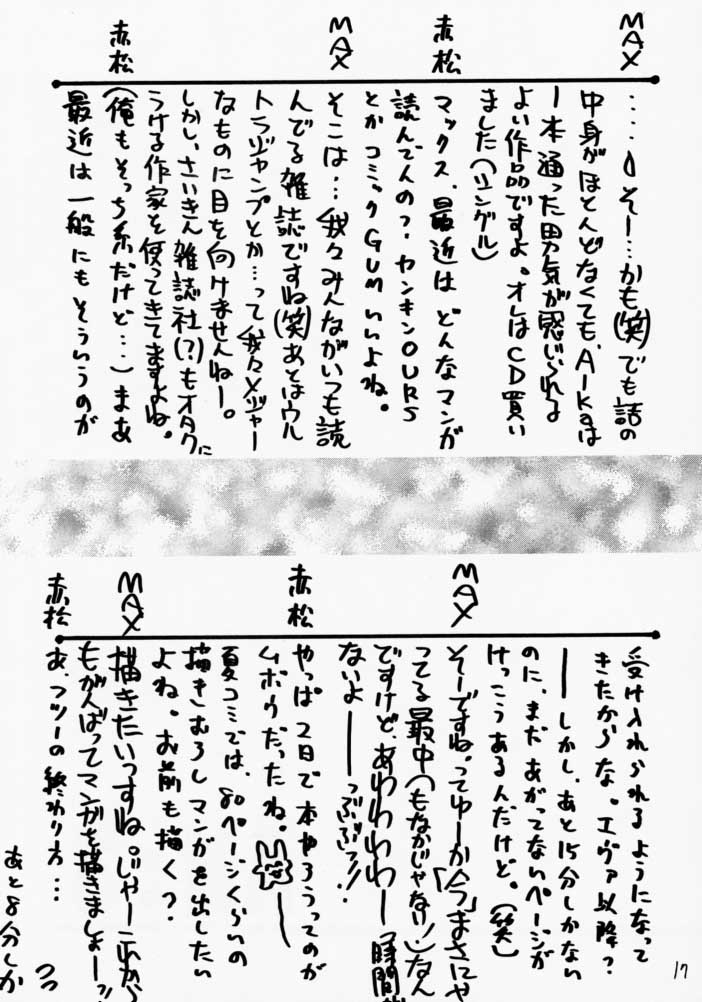 MAX
‥‥うそー…かも(笑)でも話の
中身がほとんどなくても、AIKaは
一本通った男気が感じられる
よい作品ですよ。オレはCD買い
ました(シングル)
赤松
マックス、最近はどんなマンガ
読んでんの?ヤンキンOURS
とかコミックGUMいいよね。
MAX
そこは…我々みんながいつも読
んでる雑誌ですね(笑)あとはウル
トラジャンプとか…って我々メジャー
なものに目を向けませんねー。
赤松
しかし、さいきん雑誌社(?)もオタクに
うける作家を使ってきてますよね。
(俺もそっち系だけど…)まあ
最近は一般にもそういうのが
受け入れられるようになって
きたからな。エヴァ以降?
――しかし、あと15分しかない
のに、まだあがってないページが
けっこうあるんだけど。(笑)
MAX
そーですね。ってゆーか「今」まさにや
ってる最中(もなかじゃない!)なん
ですけど、あわわわわー時間が
ないよーーっぷぷっ!!
赤松
やっぱ2日で本やろうってのが
ムボウだったね。
夏コミでは、80ページくらいの
描きむろしマンガを出したい
よね。お前も描く?
MAX
描きたいっすね。じゃーこれから
もがんばってマンガを描きましょーっ!!
赤松
あ、フツーの終わり方…
あと8分しか
17